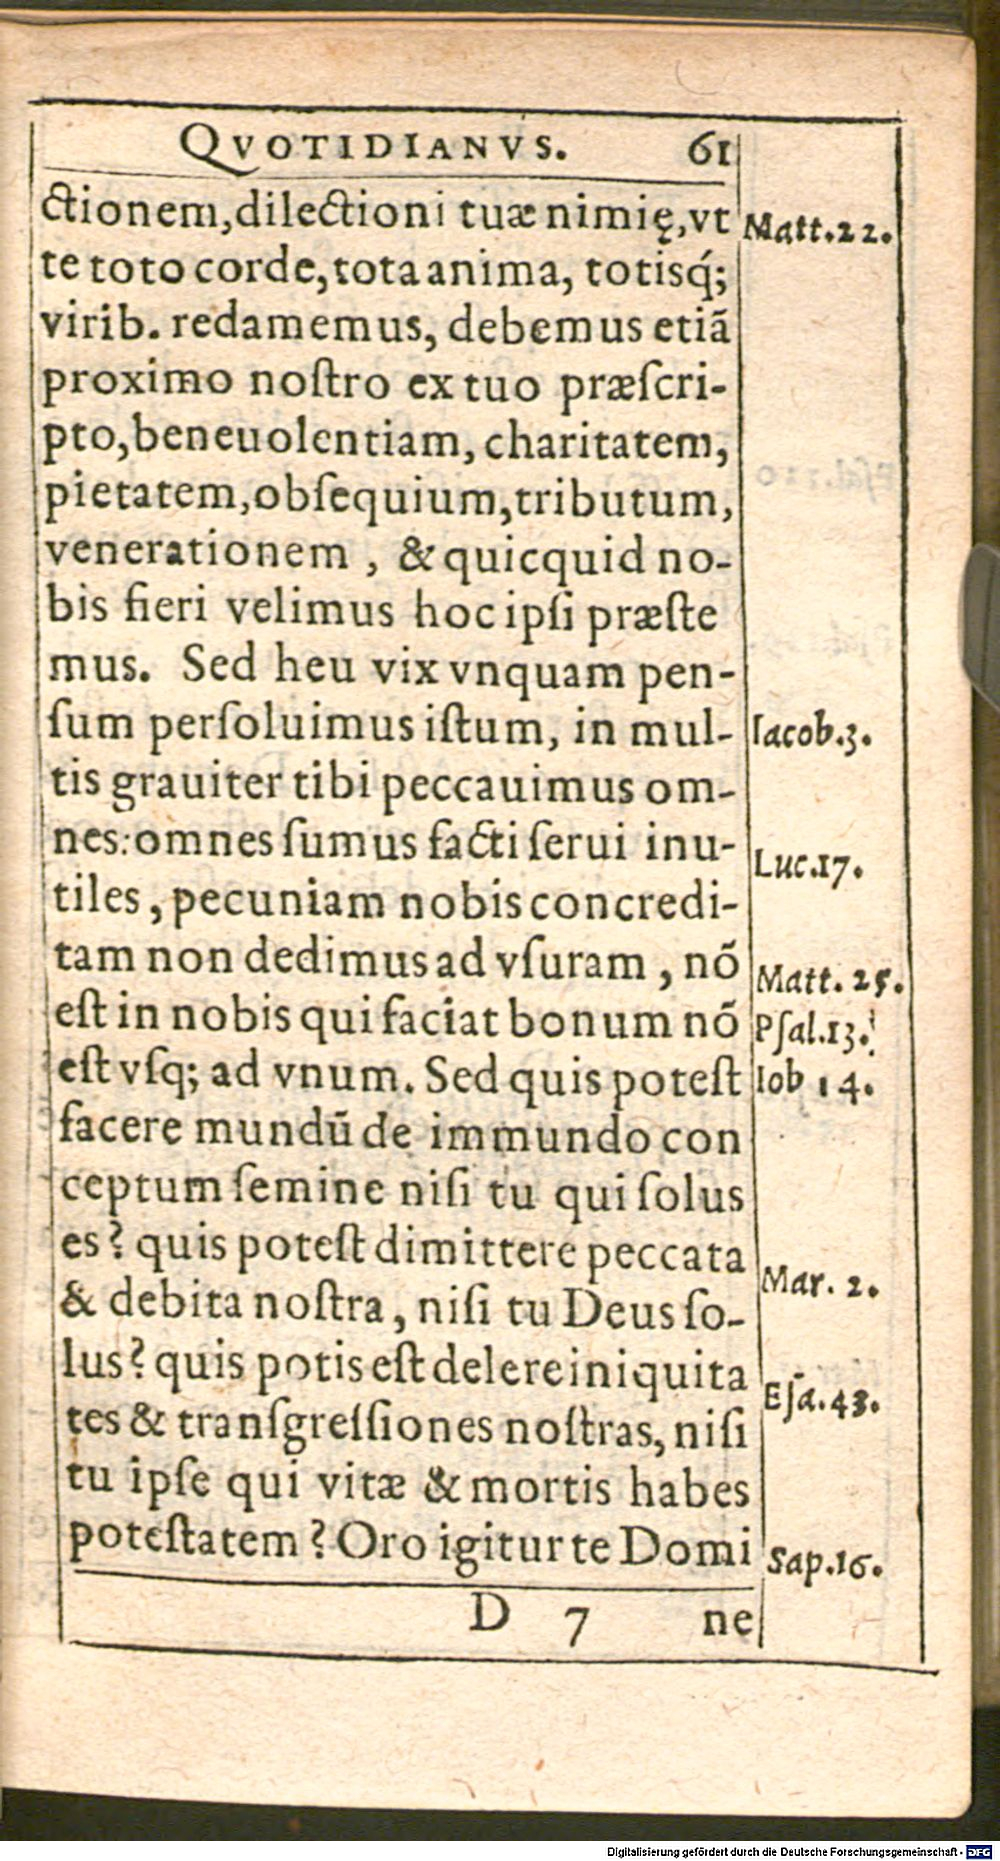 QVOTIDIANVS. 61
ctionem,dilectioni tuæ nimię,vt
te toto corde,tota anima, totisq́;
virib. redamemus, debemus etiã
proximo noſtro ex tuo præſcri-
pto,beneuolentiam, charitatem,
pietatem,obſequium,tributum,
venerationem , & quicquid no-
bis fieri velimus hoc ipſi præſte
mus. Sed heu vix vnquam pen-
ſum perſoluimus iſtum, in mul-
tis grauiter tibi peccauimus om-
nes: omnes ſumus facti ſerui inu-
tiles , pecuniam nobis concredi-
tam non dedimus ad vſuram , nõ
eſt in nobis qui faciat bonum nõ
eſt vſq; ad vnum. Sed quis poteſt
facere mundũ de immundo con
ceptum ſemine niſi tu qui ſolus
es? quis poteſt dimittere peccata
& debita noſtra , niſi tu Deus ſo-
lus? quis potis eſt delere iniquita
tes & tranſgreſſiones noſtras, niſi
tu ipſe qui vitæ & mortis habes
poteſtatem ? Oro igitur te Domi
D 7 ne
Matt.22.
Iacob.3.
Luc.17.
Matt. 25.
Pſal.13.
Iob 14.
Mar. 2.
Eſa.43.
Sap.16.
Digitalisierung gefördert durch die Deutsche Forschungsgemeinschaft - DFG